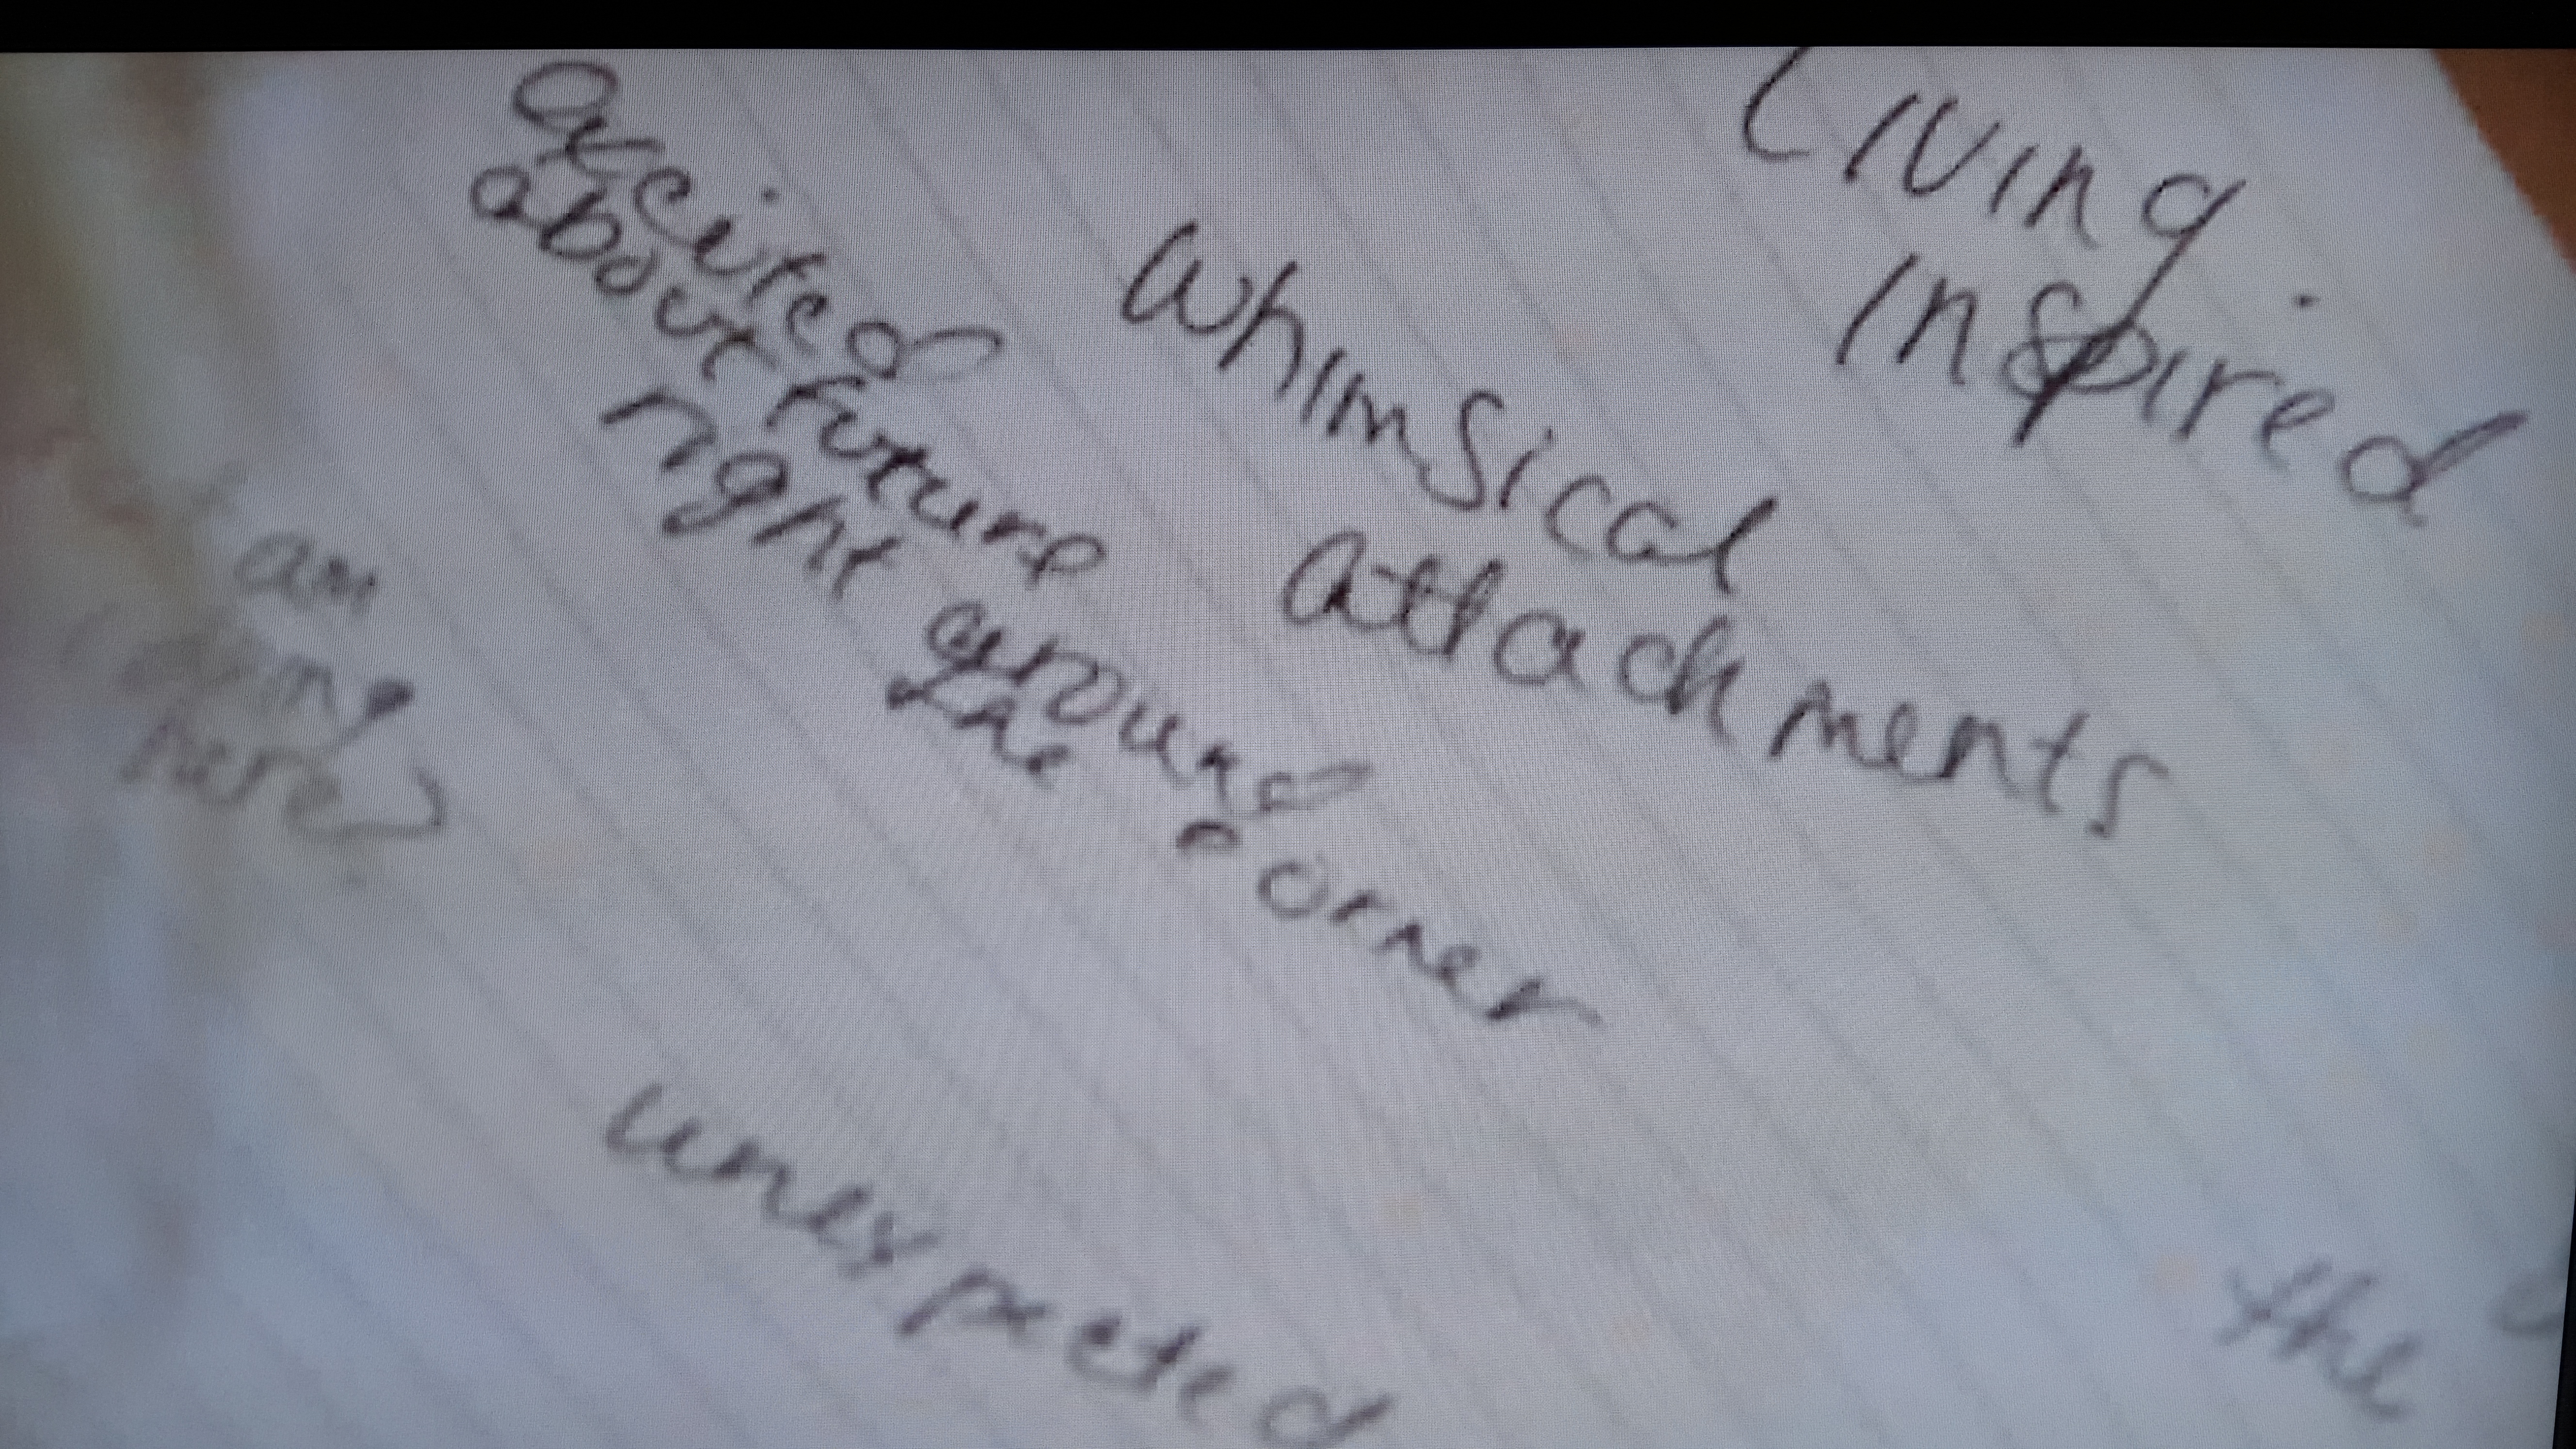 Living
Inspired
Whimsical
attachments
excited
about future
right around
the corner
am
here
unexpected
the